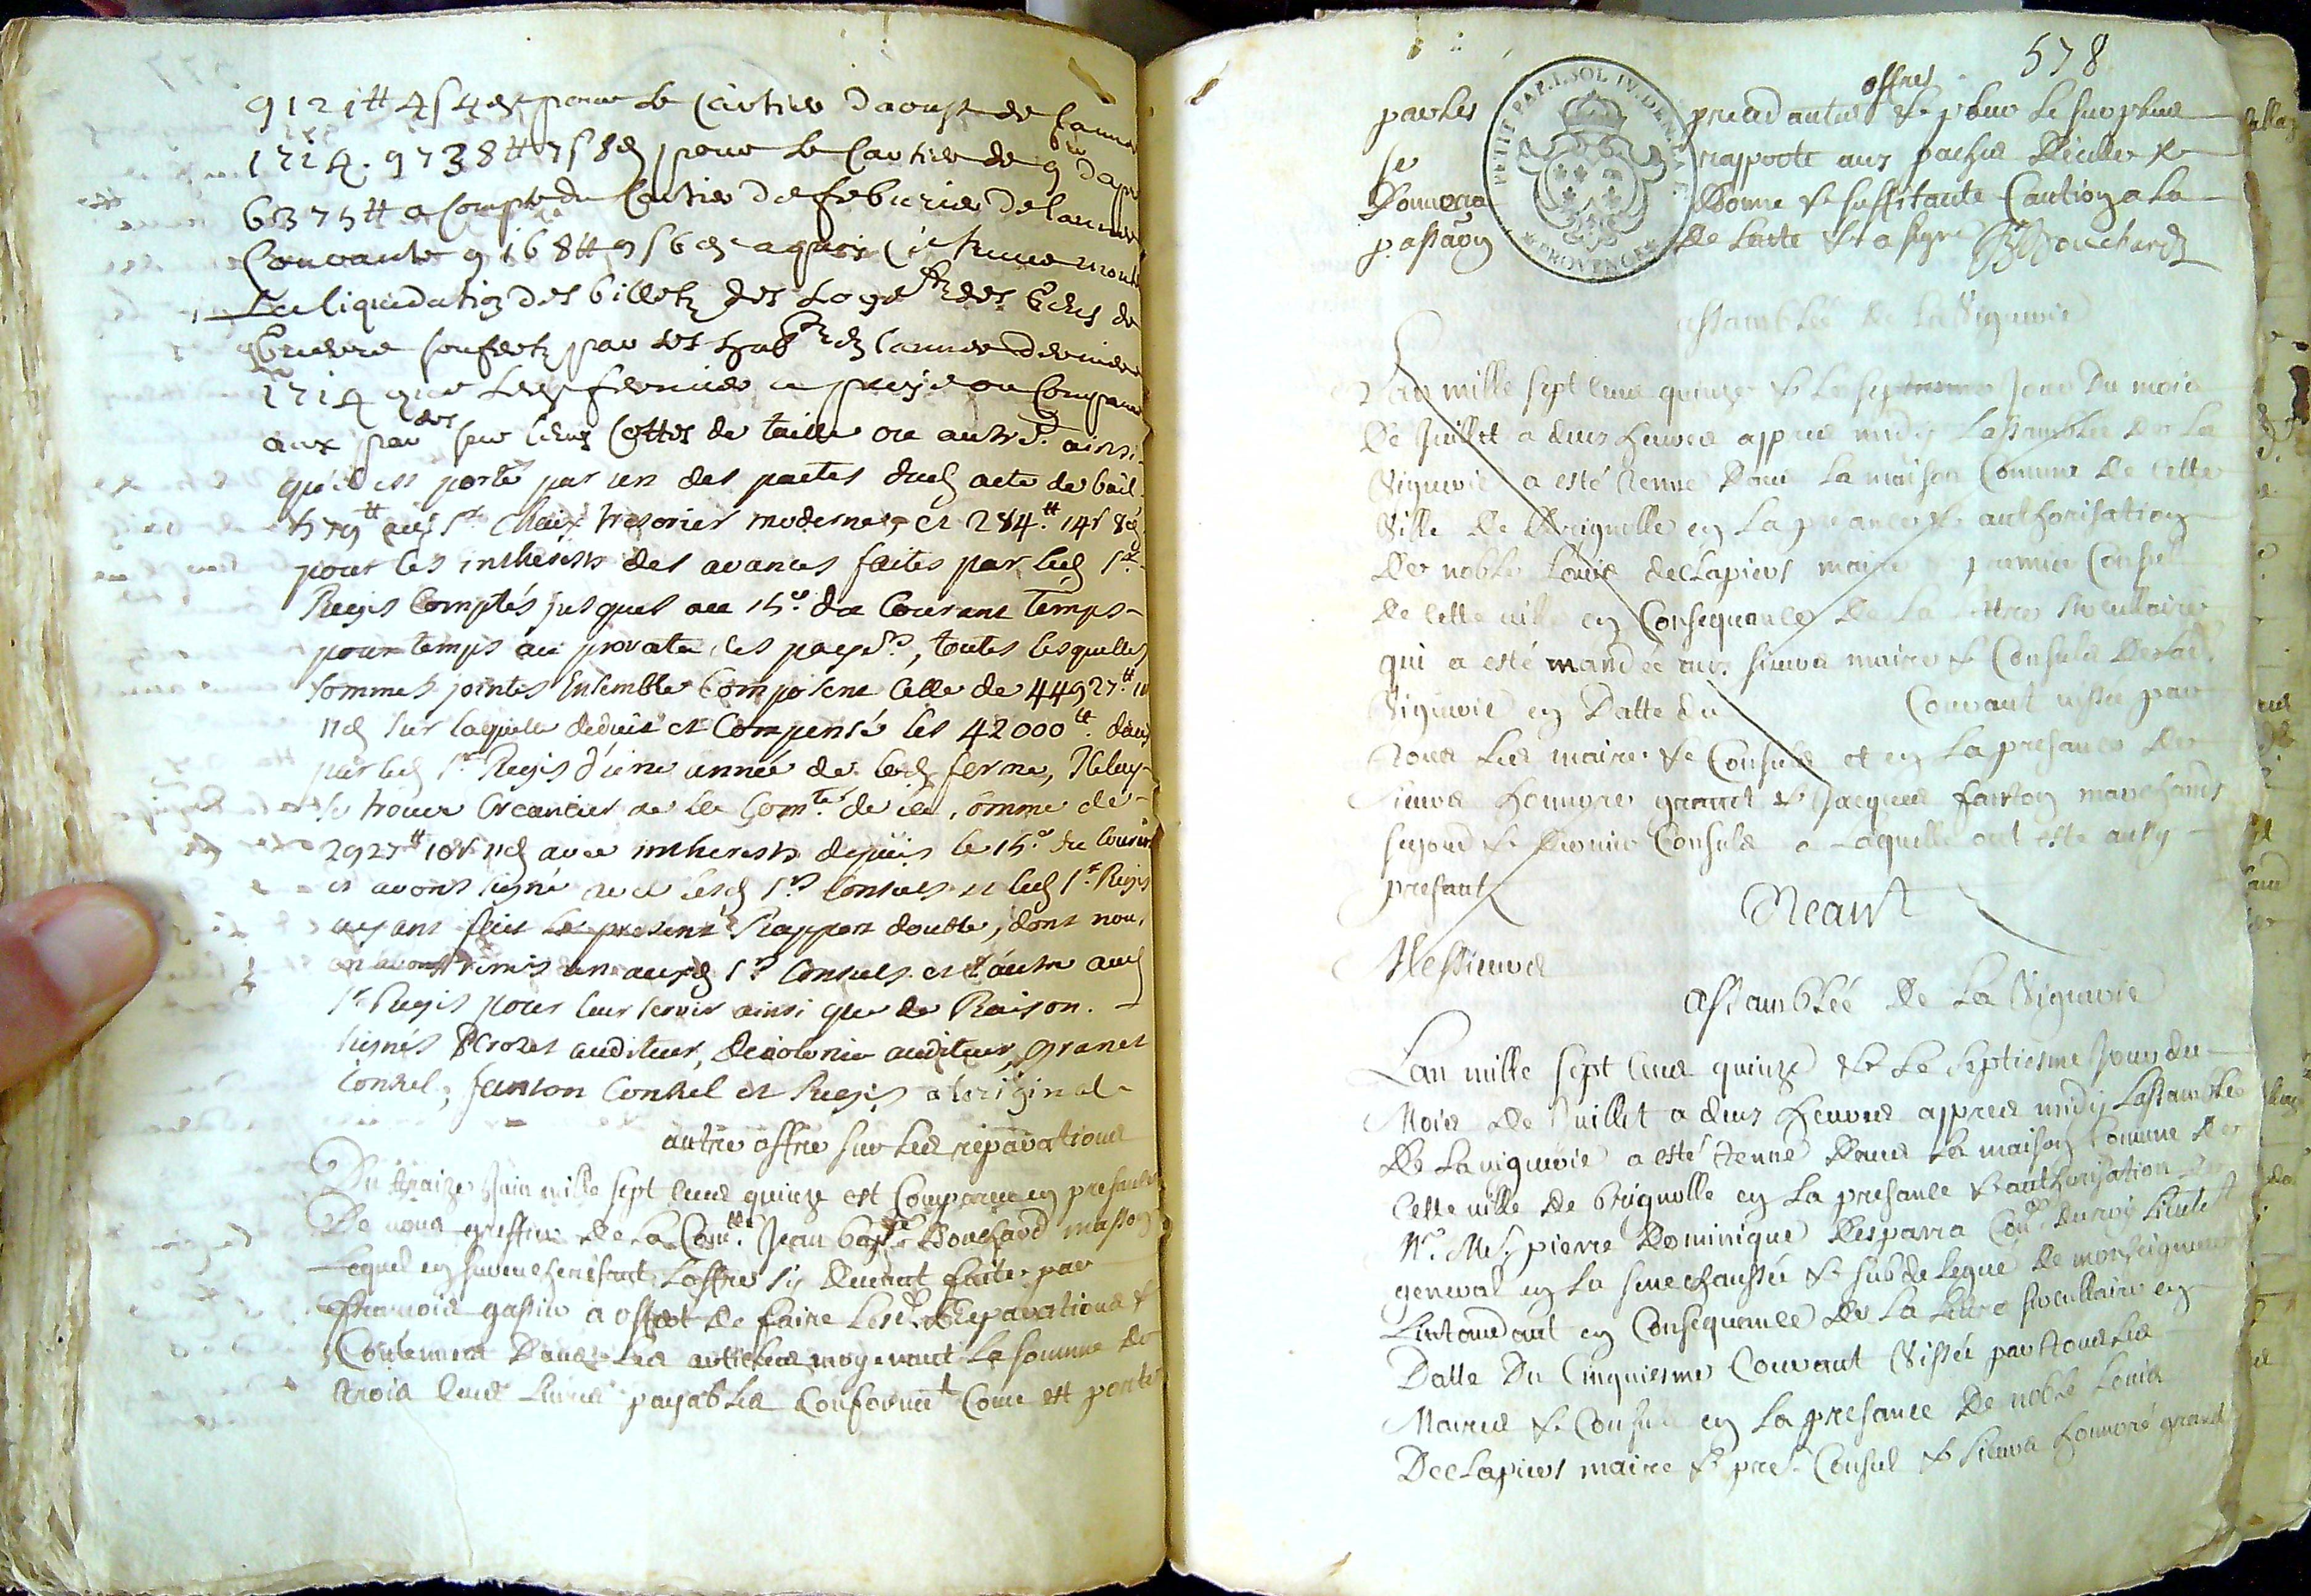 9121# 4s 4d pour Le Cartier daoust de lanne
1714. 9738# 7s 8d pour Le Cartier de 9bre dapr
6375# a Compte du Cartier de febvrier de lannee
Courante 9168# 9s 6d a quoy monte
La liquidation des billetz des Logemts des gens de
guerre soufertz par les habnts lannée derniere
1714 que led fermier a payé ou Compancé
aux parers sur leurs Cottes de taille ou autres. ainsi
qu'il est porté par un des pactes dud acte de bail
579# aud Sr. Chaix tresorier moderne, et 284.# 14s 8d
pour les intherests des avances faites par led Sr.
Regis Comptés jusques au 15e. du Courant temps
pour temps au prorata des payemts, toutes lesquelles
sommes jointes Ensemble Composent Celle de 44927.# 10s
11d sur laquelle deduit et Compensé les 42000#. deus
par led Sr Regis d'une année de lad ferme, Il luy
se trouve Creancier de la Comté. de la somme de
2927# 10s 11d avec intherests depuis le 15e. du Courant
et avons signé avec lesd Srs Consuls et led Sr. Regis
ayant fait Le present Rapport double, dont nous
en avons remis un auxd Srs Consuls et l'autre aud
Sr Regis pour leur servir ainsi que de Raison.
signés Crozet auditeur, Decolonia auditeur, Granet
Consul, fanton Consul et Regis a loriginal
autre offre sur Les reparations
Du traize Juin mille sept cens quinze est Comparu en presance
De nous greffier de la Comté. Jean bapte Bouchard masson
Lequel en surencherissant Loffre sy devant faite par
francois gassin a offert de faire lesd. Reparations &
Contenues Dans les articles moyenant la somme de
trois cens Livres payables Conformt Come est porté
578
offres
par les precedantes & pour le surplus
se rapporte aux pactes D'icelles &
Donnera Bonne & suffisante Caution a La
passaon de Lacte & a signé JBBouchard
assamblée de La Viguerie
Lan mille sept cens quinze & le septiesme Jour Du mois
De Juillet a deux heures appres midy Lassamblée de La
Viguerie a esté tenue Dans La maison Comune de cette
Ville de Brignolle en La presance & authorisation
De noble Louis declapiers maire & premier Consul
de cette ville en Consequance De La lettre sirculaire
qui a esté mandée aux sieurs maires & Consuls de lad.
Viguerie en Datte du Courant vissée par
Nous Les maires & Consuls et en La presance des
sieurs honnoré granet & Jacques fanton marchands
segond & Dernier Consuls a Laquelle ont esté ausy
presants
Neant
Messieurs
assamblée De La Viguerie
Lan mille sept cens quinze & Le septiesme Jour du
Mois De Juillet a deux heures appres midy Lassamblée
De La viguerie a esté tenue Dans La maison Comune de
Cette ville de brignolle en La presance & authorisation de
Mr. Me. pierre Dominique Desparra Conr. du roy Lieutet
general en La senechaussée & subdelegué de monseigneur
Lintandant en Consequance De La Lettre sirculaire en
Datte Du Cinquiesme Courant Vissée par Nous Les
Maires & Consuls en La presance De noble Louis
Declapiers maire & premr Consul & sieurs honnoré granet